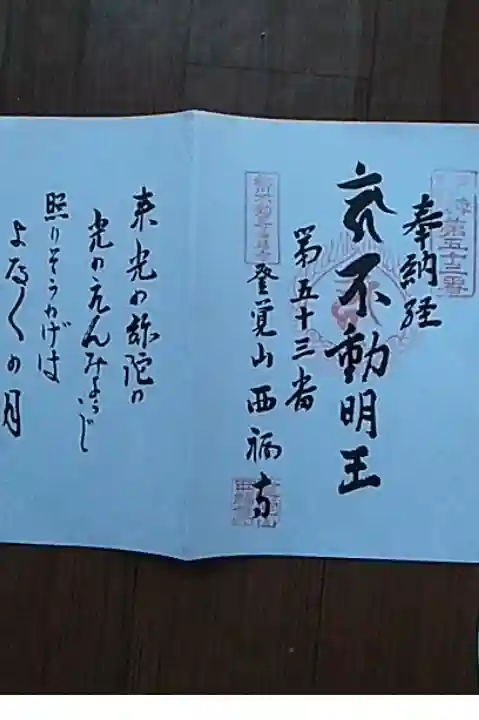 奉納経
不動明王
第五十三番
登覚山西福寺
来光の弥陀の
光のえんみょうじ
照りそうかげは
よなくの月
第五十三番